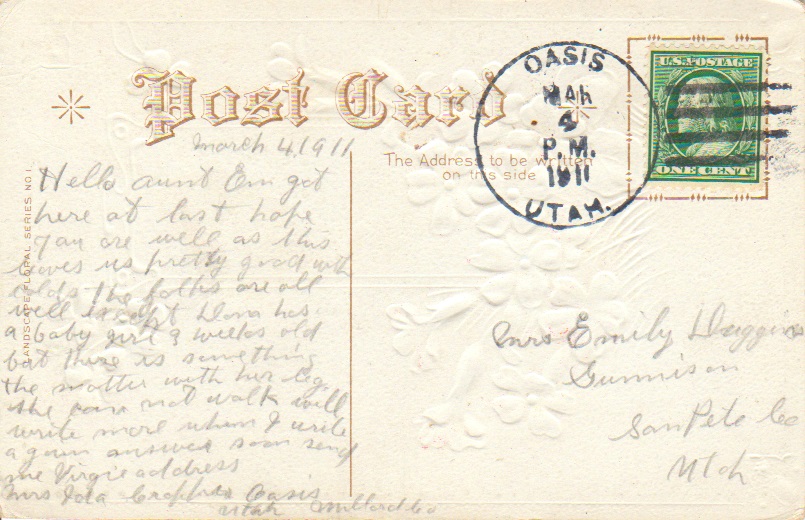 Post Card
The Address to be written
on this side
LANDSCAPE FLORAL SERIES NO 1.
OASIS
MAR
4
P.M.
1911
UTAH.
U.S. POSTAGE
ONE CENT
March 4, 1911
Hello aunt Em got
here at last hope
you are well as this
leaves us pretty good with
colds the folks are all
well except Dora has
a baby girl 3 weeks old
but there is something
the matter with her leg
she can not walk will
write more when I write
a gain answer soon send
me Virgie address
Mrs Ida Oasis
Utah Millard Co
Mrs Emily Duggins
Gunnison
San Pete Co
Utah